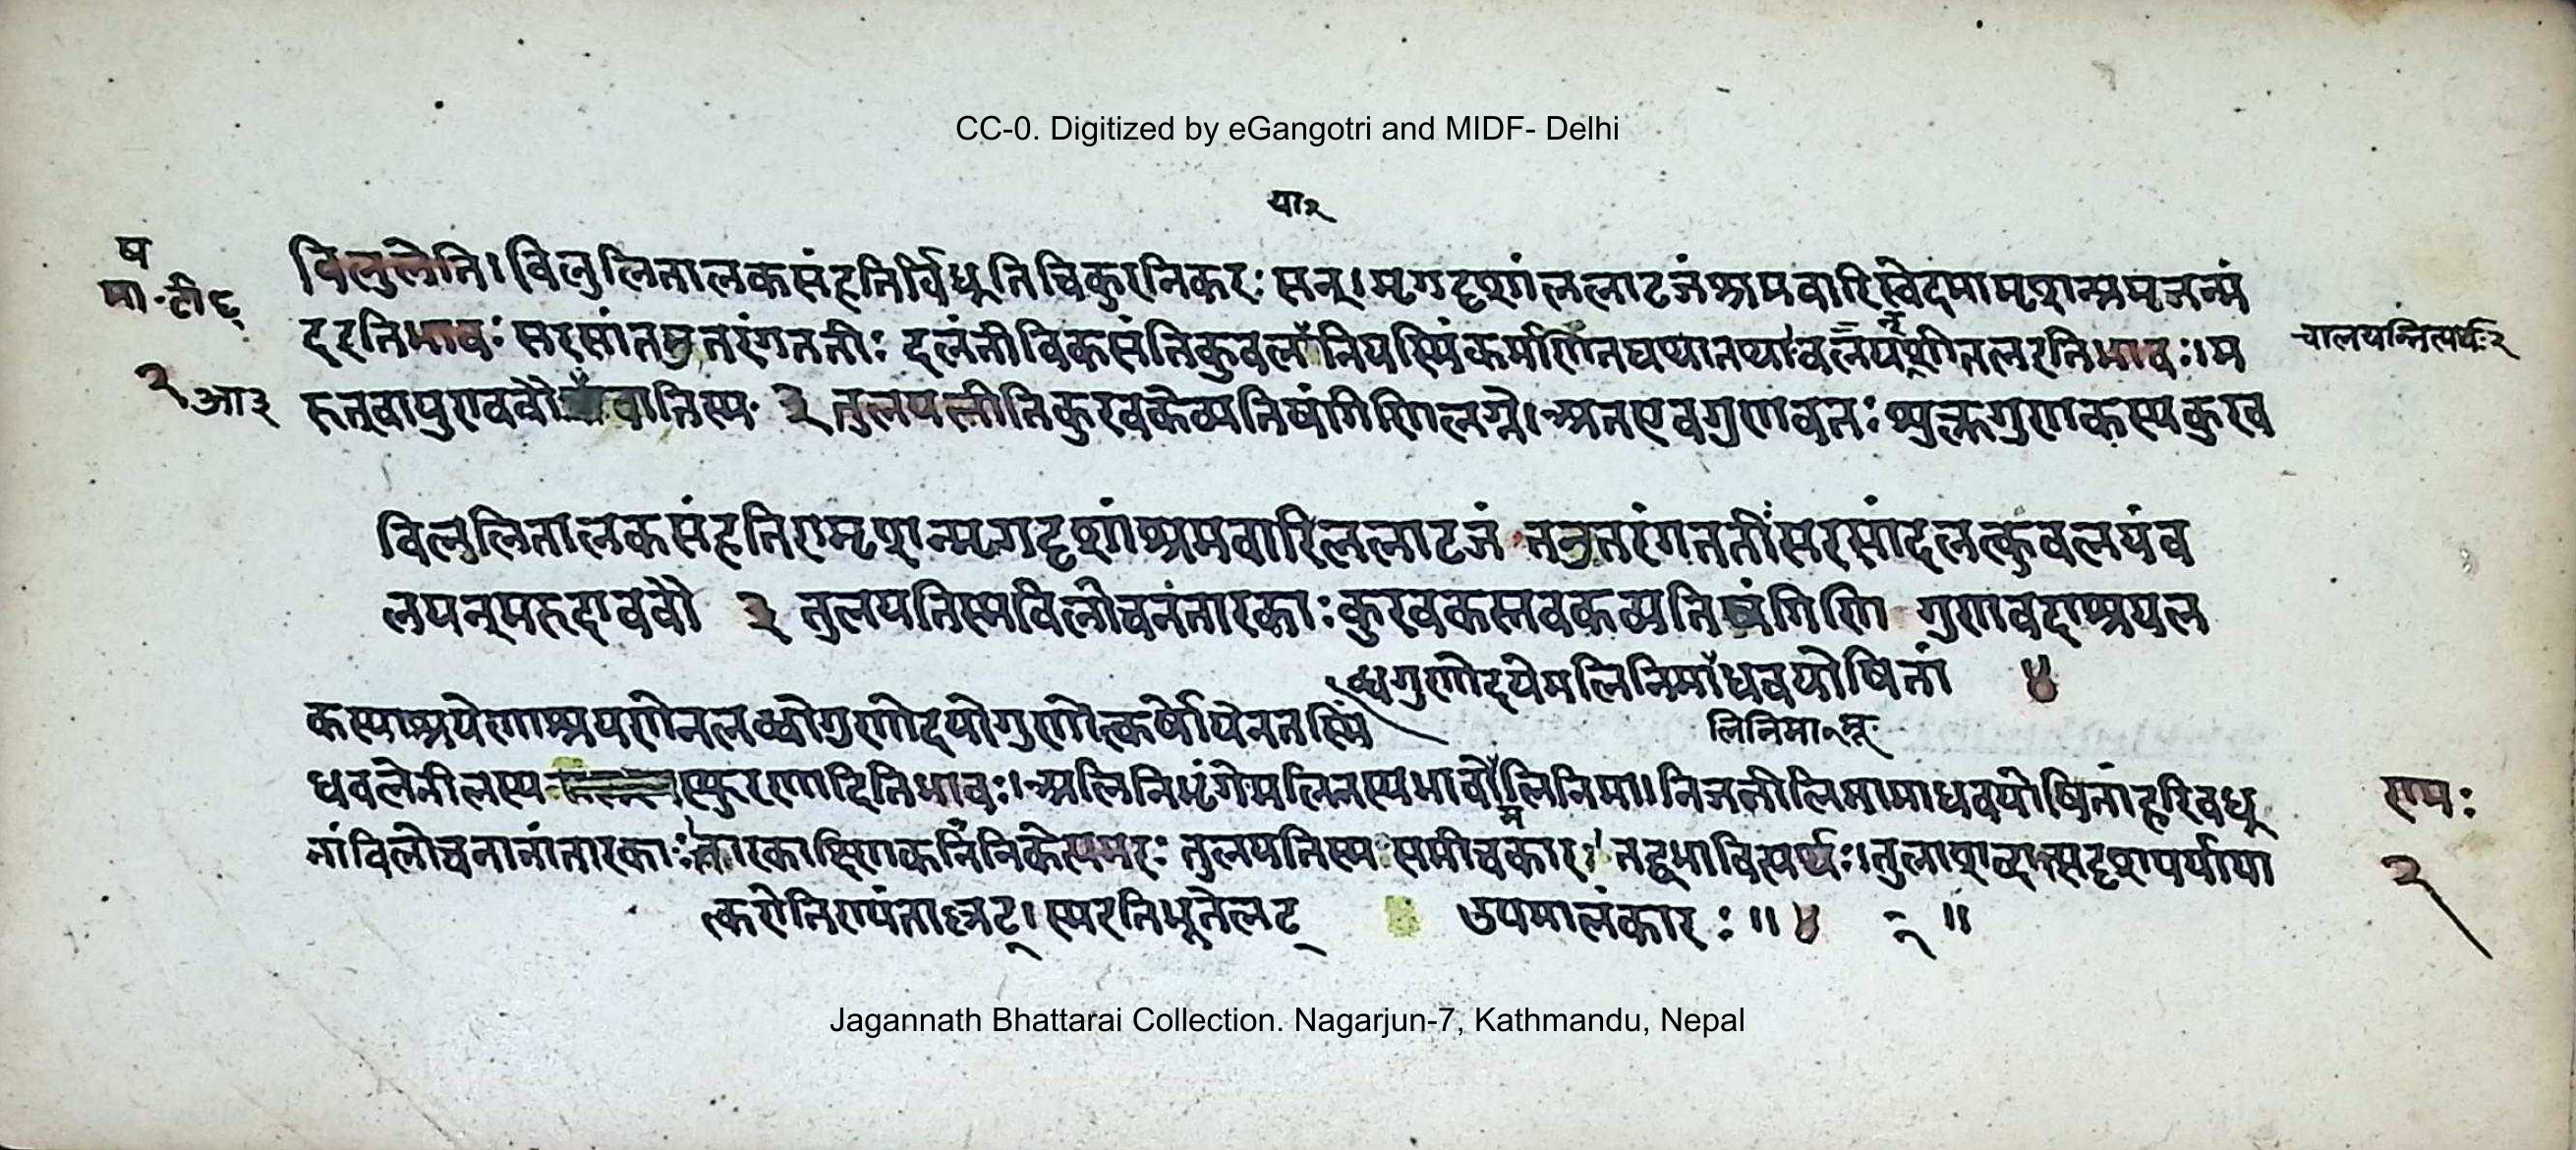 CC-0. Digitized by eGangotri and MIDF- Delhi
या२
ष
मा·टी६
२
आ३
विलुलेति।विलुलितालकसंहतिर्विधूतिचिकुरनिकरः सन्।मृगदृशांललाटजंश्रमवारिस्वेदमामृशन्प्रमृजन्मं
दरतिभावः सरसांत तरंगततीः दलंतीविकसंतिकुवलयानियस्मिंकर्मणितद्यथातथा
चालयन्नित्यर्थः२
रुत्वायुराववौ वातिस्म ३ कुरवकेव्यतिषंगिणिलग्ने।अतएवगुणवतः शुक्लगुणकस्यकुरव
विलुलितालकसंहतिरामृशन्मृगदृशांश्रमवारिललाटजं तनुतरंगततीःसरसांदलत्कुवलयंव
लयन्मरुदाववौ ३ तुलयतिस्मविलोचनतारकाःकुरवकस्तवकव्यतिषंगिणि गुणवदाश्रयल
ब्धगुणोदयेमलिनिमाधवयोषितां ४
कस्याश्रयेणाश्रयणेनलब्धोगुणोदयोगुणोत्कर्षोयेनतस्मिं
लिनिमा२
धवलेनीलस्य स्फुरणादितिभावः।अलिनिभृंगेमलिनस्यभावो लिनिमा।निजनीलिमामाधवयोषितांहरिवधू
नांविलोचनानांतारकाः तुलयतिस्म समीचकार।
त्करोतिण्यंताल्लट्।स्मरतिभूतेलट् उपमालंकारः॥४ ॥
रामः
२
Jagannath Bhattarai Collection. Nagarjun-7, Kathmandu, Nepal